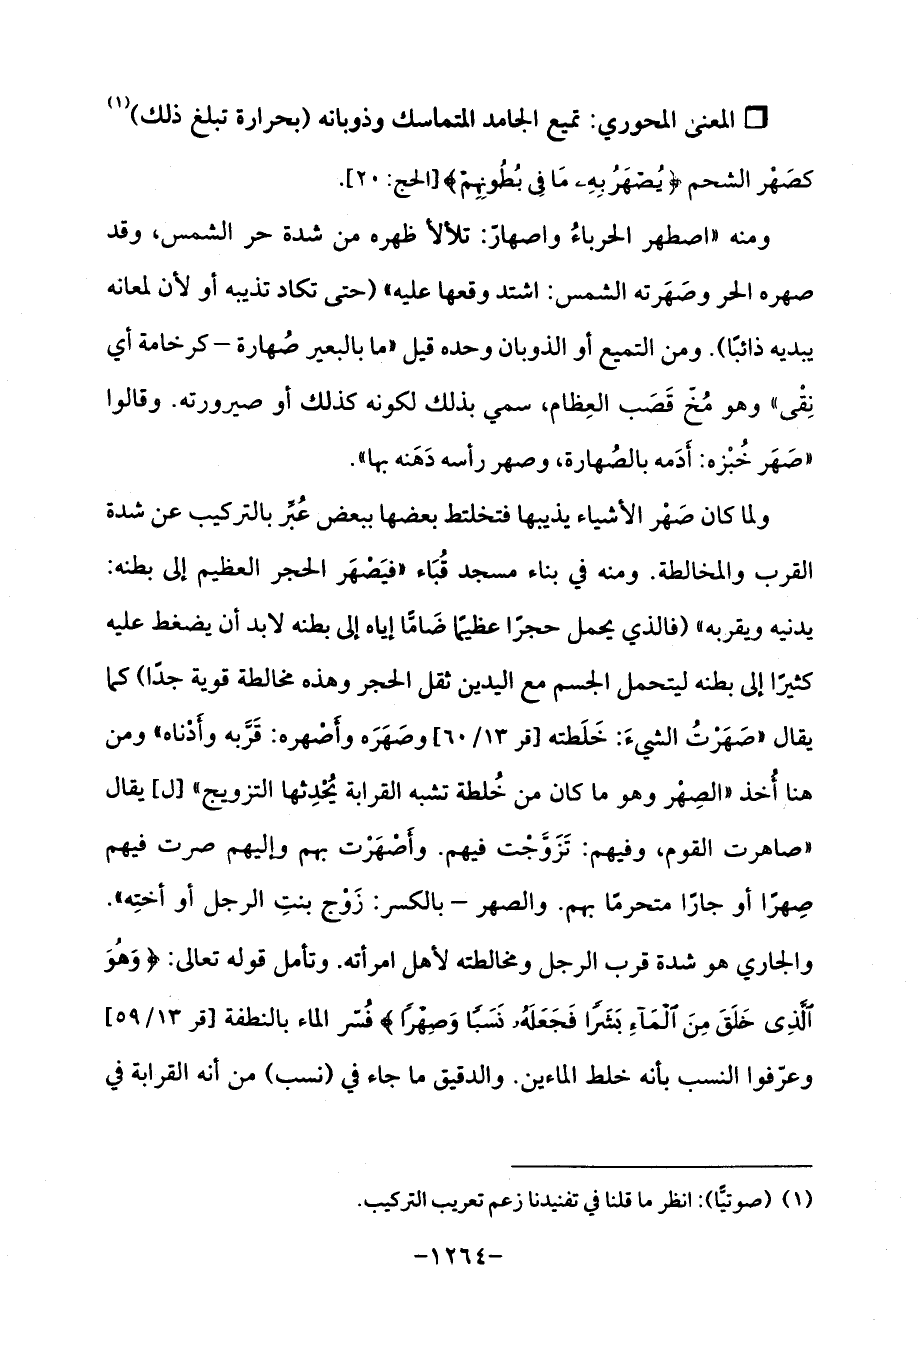 ❑ المعنى المحوري: تميع الجامد المتماسك وذوبانه (بحرارة تبلغ ذلك)(١)
كصَهْر الشحم ﴿يُصْهَرُ بِهِۦ مَا فِي بُطُونِهِمْ﴾ [الحج: ٢٠].
ومنه «اصطهر الحرباءُ واصهارّ: تلألأ ظهره من شدة حر الشمس، وقد
صهره الحر وصَهَرته الشمس: اشتد وقعها عليه» (حتى تكاد تذيبه أو لأن لمعانه
يبديه ذائبًا). ومن التميع أو الذوبان وحده قيل «ما بالبعير صُهارة – كرخامة أي
نِقْى» وهو مُخّ قَصَب العِظام، سمي بذلك لكونه كذلك أو صيرورته. وقالوا
«صَهَر خُبْزه: أَدَمه بالصُهارة، وصهر رأسه دَهَنه بها».
ولما كان صَهْر الأشياء يذيبها فتختلط بعضها ببعض عُبِّر بالتركيب عن شدة
القرب والمخالطة. ومنه في بناء مسجد قُبَاء «فيَصْهَر الحجر العظيم إلى بطنه:
يدنيه ويقربه» (فالذي يحمل حجرًا عظيمًا ضَامًّا إياه إلى بطنه لابد أن يضغط عليه
كثيرًا إلى بطنه ليتحمل الجسم مع اليدين ثقل الحجر وهذه مخالطة قوية جدًا) كما
يقال «صَهَرْتُ الشيءَ: خَلَطته [قر ١٣/ ٦٠] وصَهَرَه وأَصْهره: قَرَّبه وأَدْناه» ومن
هنا أُخذ «الصِهْر وهو ما كان من خُلطة تشبه القرابة يُحْدِثها التزويج» [ل] يقال
«صاهرت القوم، وفيهم: تَزَوَّجْت فيهم. وأَصْهَرْت بهم وإليهم صرت فيهم
صِهرًا أو جارًا متحرمًا بهم. والصهر – بالكسر: زَوْج بنتِ الرجل أو أختِه».
والجاري هو شدة قرب الرجل ومخالطته لأهل امرأته. وتأمل قوله تعالى: ﴿وَهُوَ
ٱلَّذِى خَلَقَ مِنَ ٱلْمَآءِ بَشَرًا فَجَعَلَهُۥ نَسَبًا وَصِهْرًا﴾ فُسّر الماء بالنطفة [قر ١٣/ ٥٩]
وعرّفوا النسب بأنه خلط الماءين. والدقيق ما جاء في (نسب) من أنه القرابة في
(١) (صوتيًّا): انظر ما قلنا في تفنيدنا زعم تعريب التركيب.
–١٢٦٤–